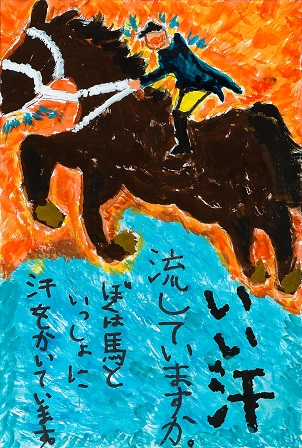 いい汗
流していますか。
ぼくは馬と
いっしょに
汗をかいています。